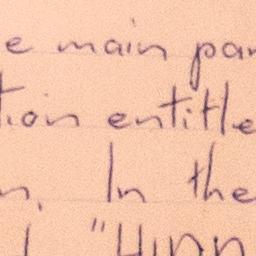 e main par
tion entitle
n. In the